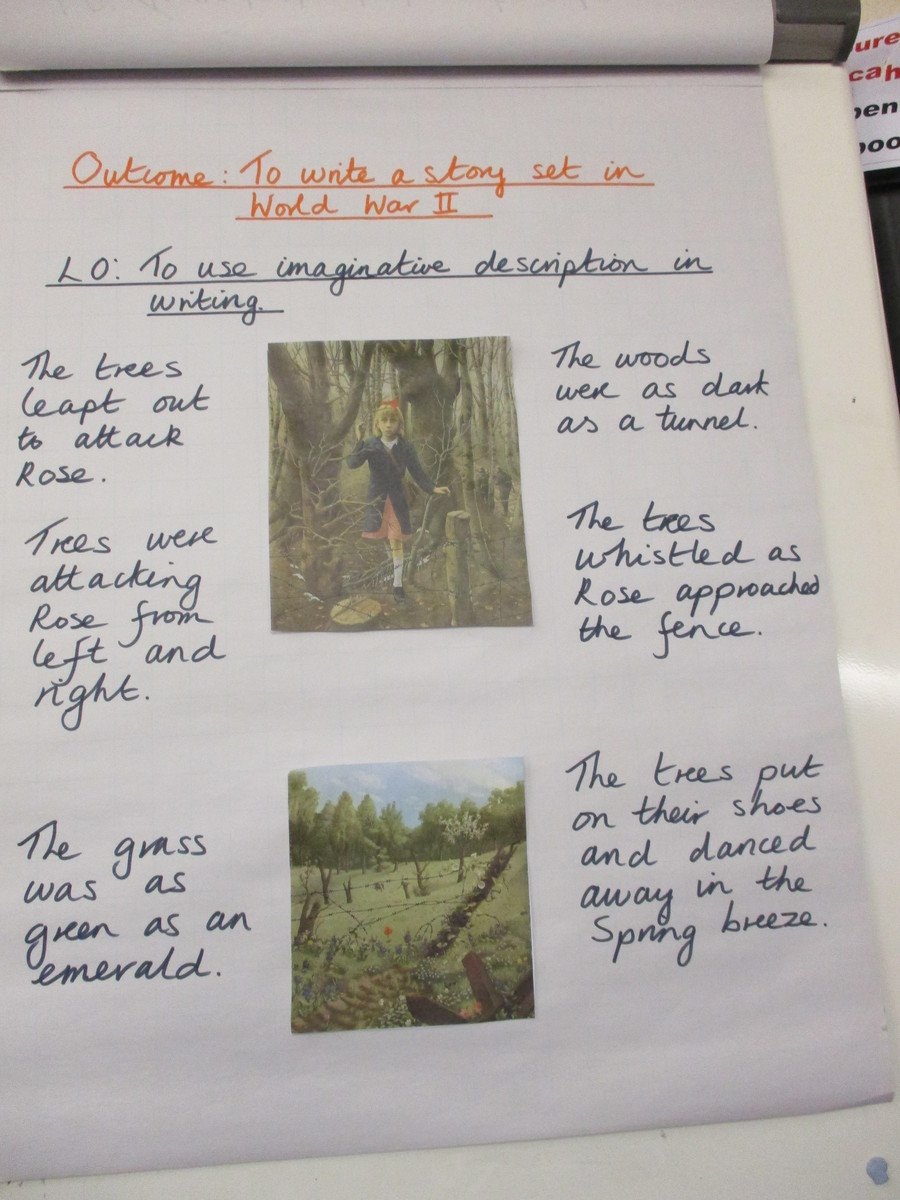 Outcome: To write a story set in
World War II
LO: To use imaginative description in
writing.
The trees
leapt out
to attack
Rose.
The woods
were as dark
as a tunnel.
Trees were
attacking
Rose from
left and
right.
The trees
whistled as
Rose approached
the fence.
The grass
was as
green as an
emerald.
The trees put
on their shoes
and danced
away in the
Spring breeze.